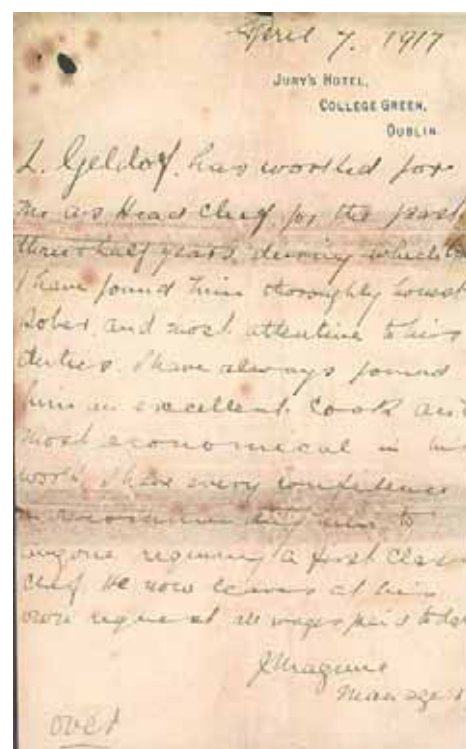 April 7. 1917
JURY'S HOTEL,
COLLEGE GREEN,
DUBLIN
L. Geldof, has worked for
me as Head Chef, for the past
three half years, during which
I have found him thoroughly honest
sober, and most attentive to his
duties. I have always found
him an excellent Cook and
most economical in his
work. I have every confidence
in recommending him to
anyone requiring a first Class
chef. He now leaves at his
own request all wages paid to date
Manager
over